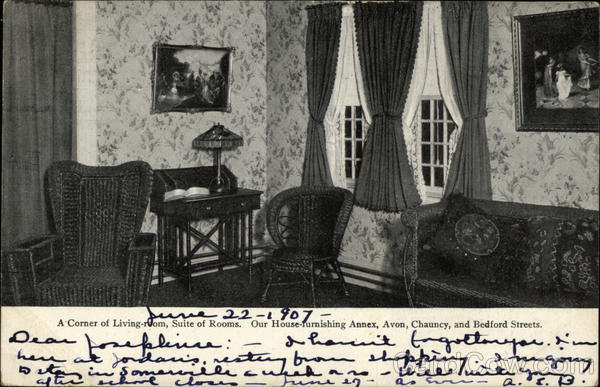 A Corner of Living-room, Suite of Rooms. Our House-furnishing Annex, Avon, Chauncy, and Bedford Streets.
June 22-1907-
Dear Josephine:- I havnt forgotten you. I'm
here at Jordan's, resting from shopping. I'm going
to in Somerville a week or so -
after school closes - June 27 -
CardCow.com